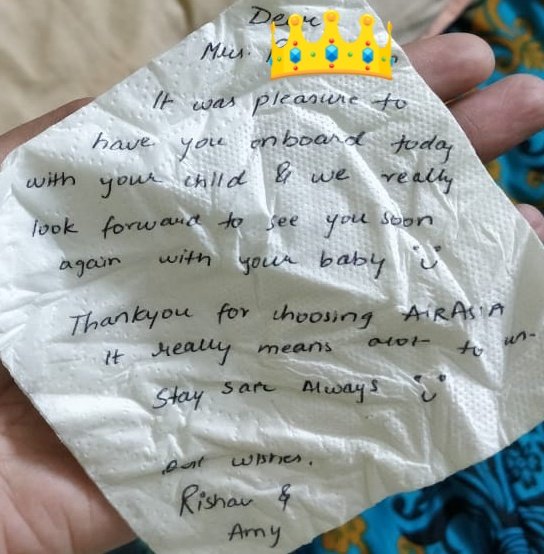 Dear
Mrs.
It was pleasure to
have you onboard today
with your child & we really
look forward to see you soon
again with your baby
Thankyou for choosing AIRASIA
It really means alot to us.
Stay safe Always
Best wishes.
Rishav &
Amy